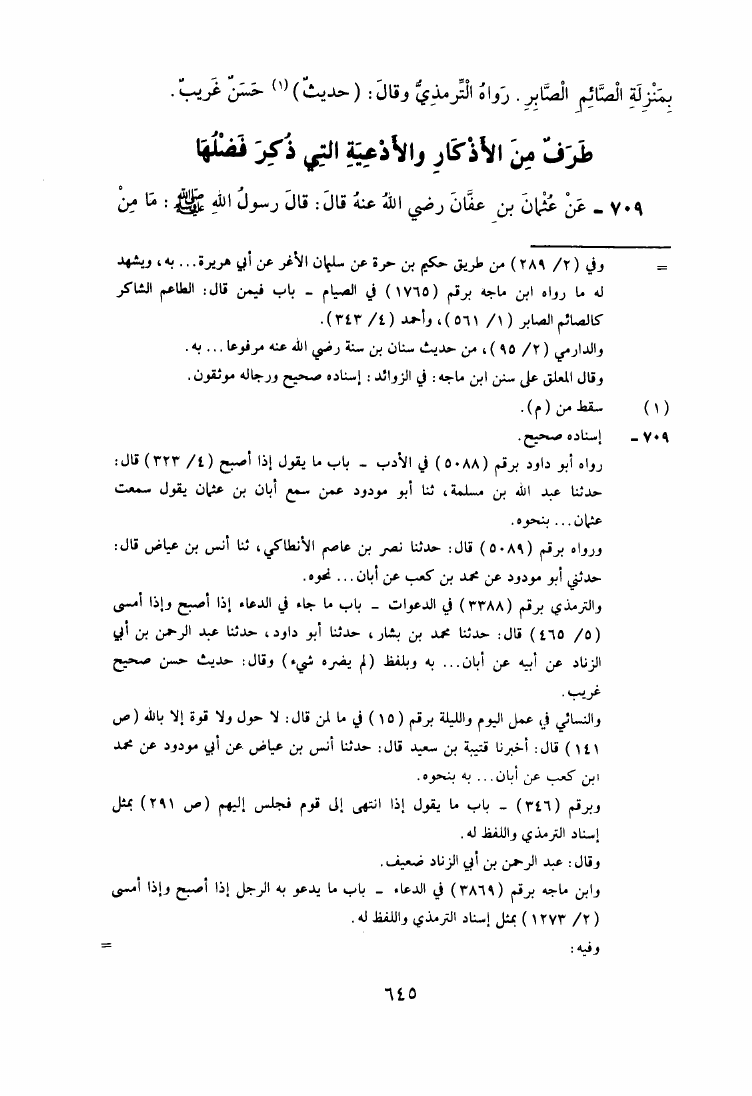 بِمَنْزِلَةِ الْصَّائِمِ الْصَّابِرِ. رَوَاهُ الْتِّرمذِيُّ وقالَ: (حديثٌ)(١) حَسَنٌ غَرِيبٌ.
طَرَفٌ مِنَ الأَذْكَارِ والأَدْعِيَةِ التي ذُكِرَ فَضْلُهَا
٧٠٩ - عَنْ عُثْمَانَ بنِ عفَّانَ رضي اللهُ عنهُ قالَ: قالَ رسولُ اللهِ ﷺ: مَا مِنْ
= وفي (٢/ ٢٨٩) من طريق حكيم بن حرة عن سلمان الأغر عن أبي هريرة... به، ويشهد
له ما رواه ابن ماجه برقم (١٧٦٥) في الصيام - باب فيمن قال: الطاعم الشاكر
كالصائم الصابر (١/ ٥٦١)، وأحمد (٤/ ٣٤٣).
والدارمي (٢/ ٩٥)، من حديث سنان بن سنة رضي الله عنه مرفوعا... به.
وقال المعلق على سنن ابن ماجه: في الزوائد: إسناده صحيح ورجاله موثقون.
(١) سقط من (م).
٧٠٩ - إسناده صحيح.
رواه أبو داود برقم (٥٠٨٨) في الأدب - باب ما يقول إذا أصبح (٤/ ٣٢٣) قال:
حدثنا عبد الله بن مسلمة، ثنا أبو مودود عمن سمع أبان بن عثمان يقول سمعت
عثمان... بنحوه.
ورواه برقم (٥٠٨٩) قال: حدثنا نصر بن عاصم الأنطاكي، ثنا أنس بن عياض قال:
حدثني أبو مودود عن محمد بن كعب عن أبان... نحوه.
والترمذي برقم (٣٣٨٨) في الدعوات - باب ما جاء في الدعاء إذا أصبح وإذا أمسى
(٥/ ٤٦٥) قال: حدثنا محمد بن بشار، حدثنا أبو داود، حدثنا عبد الرحمن بن أبي
الزناد عن أبيه عن أبان... به وبلفظ (لم يضره شيء) وقال: حديث حسن صحيح
غريب.
والنسائي في عمل اليوم والليلة برقم (١٥) في ما لمن قال: لا حول ولا قوة إلا بالله (ص
١٤١) قال: أخبرنا قتيبة بن سعيد قال: حدثنا أنس بن عياض عن أبي مودود عن محمد
ابن كعب عن أبان... به بنحوه.
وبرقم (٣٤٦) - باب ما يقول إذا انتهى إلى قوم فجلس إليهم (ص ٢٩١) بمثل
إسناد الترمذي واللفظ له.
وقال: عبد الرحمن بن أبي الزناد ضعيف.
وابن ماجه برقم (٣٨٦٩) في الدعاء - باب ما يدعو به الرجل إذا أصبح وإذا أمسى
(٢/ ١٢٧٣) بمثل إسناد الترمذي واللفظ له.
وفيه: =
٦٤٥